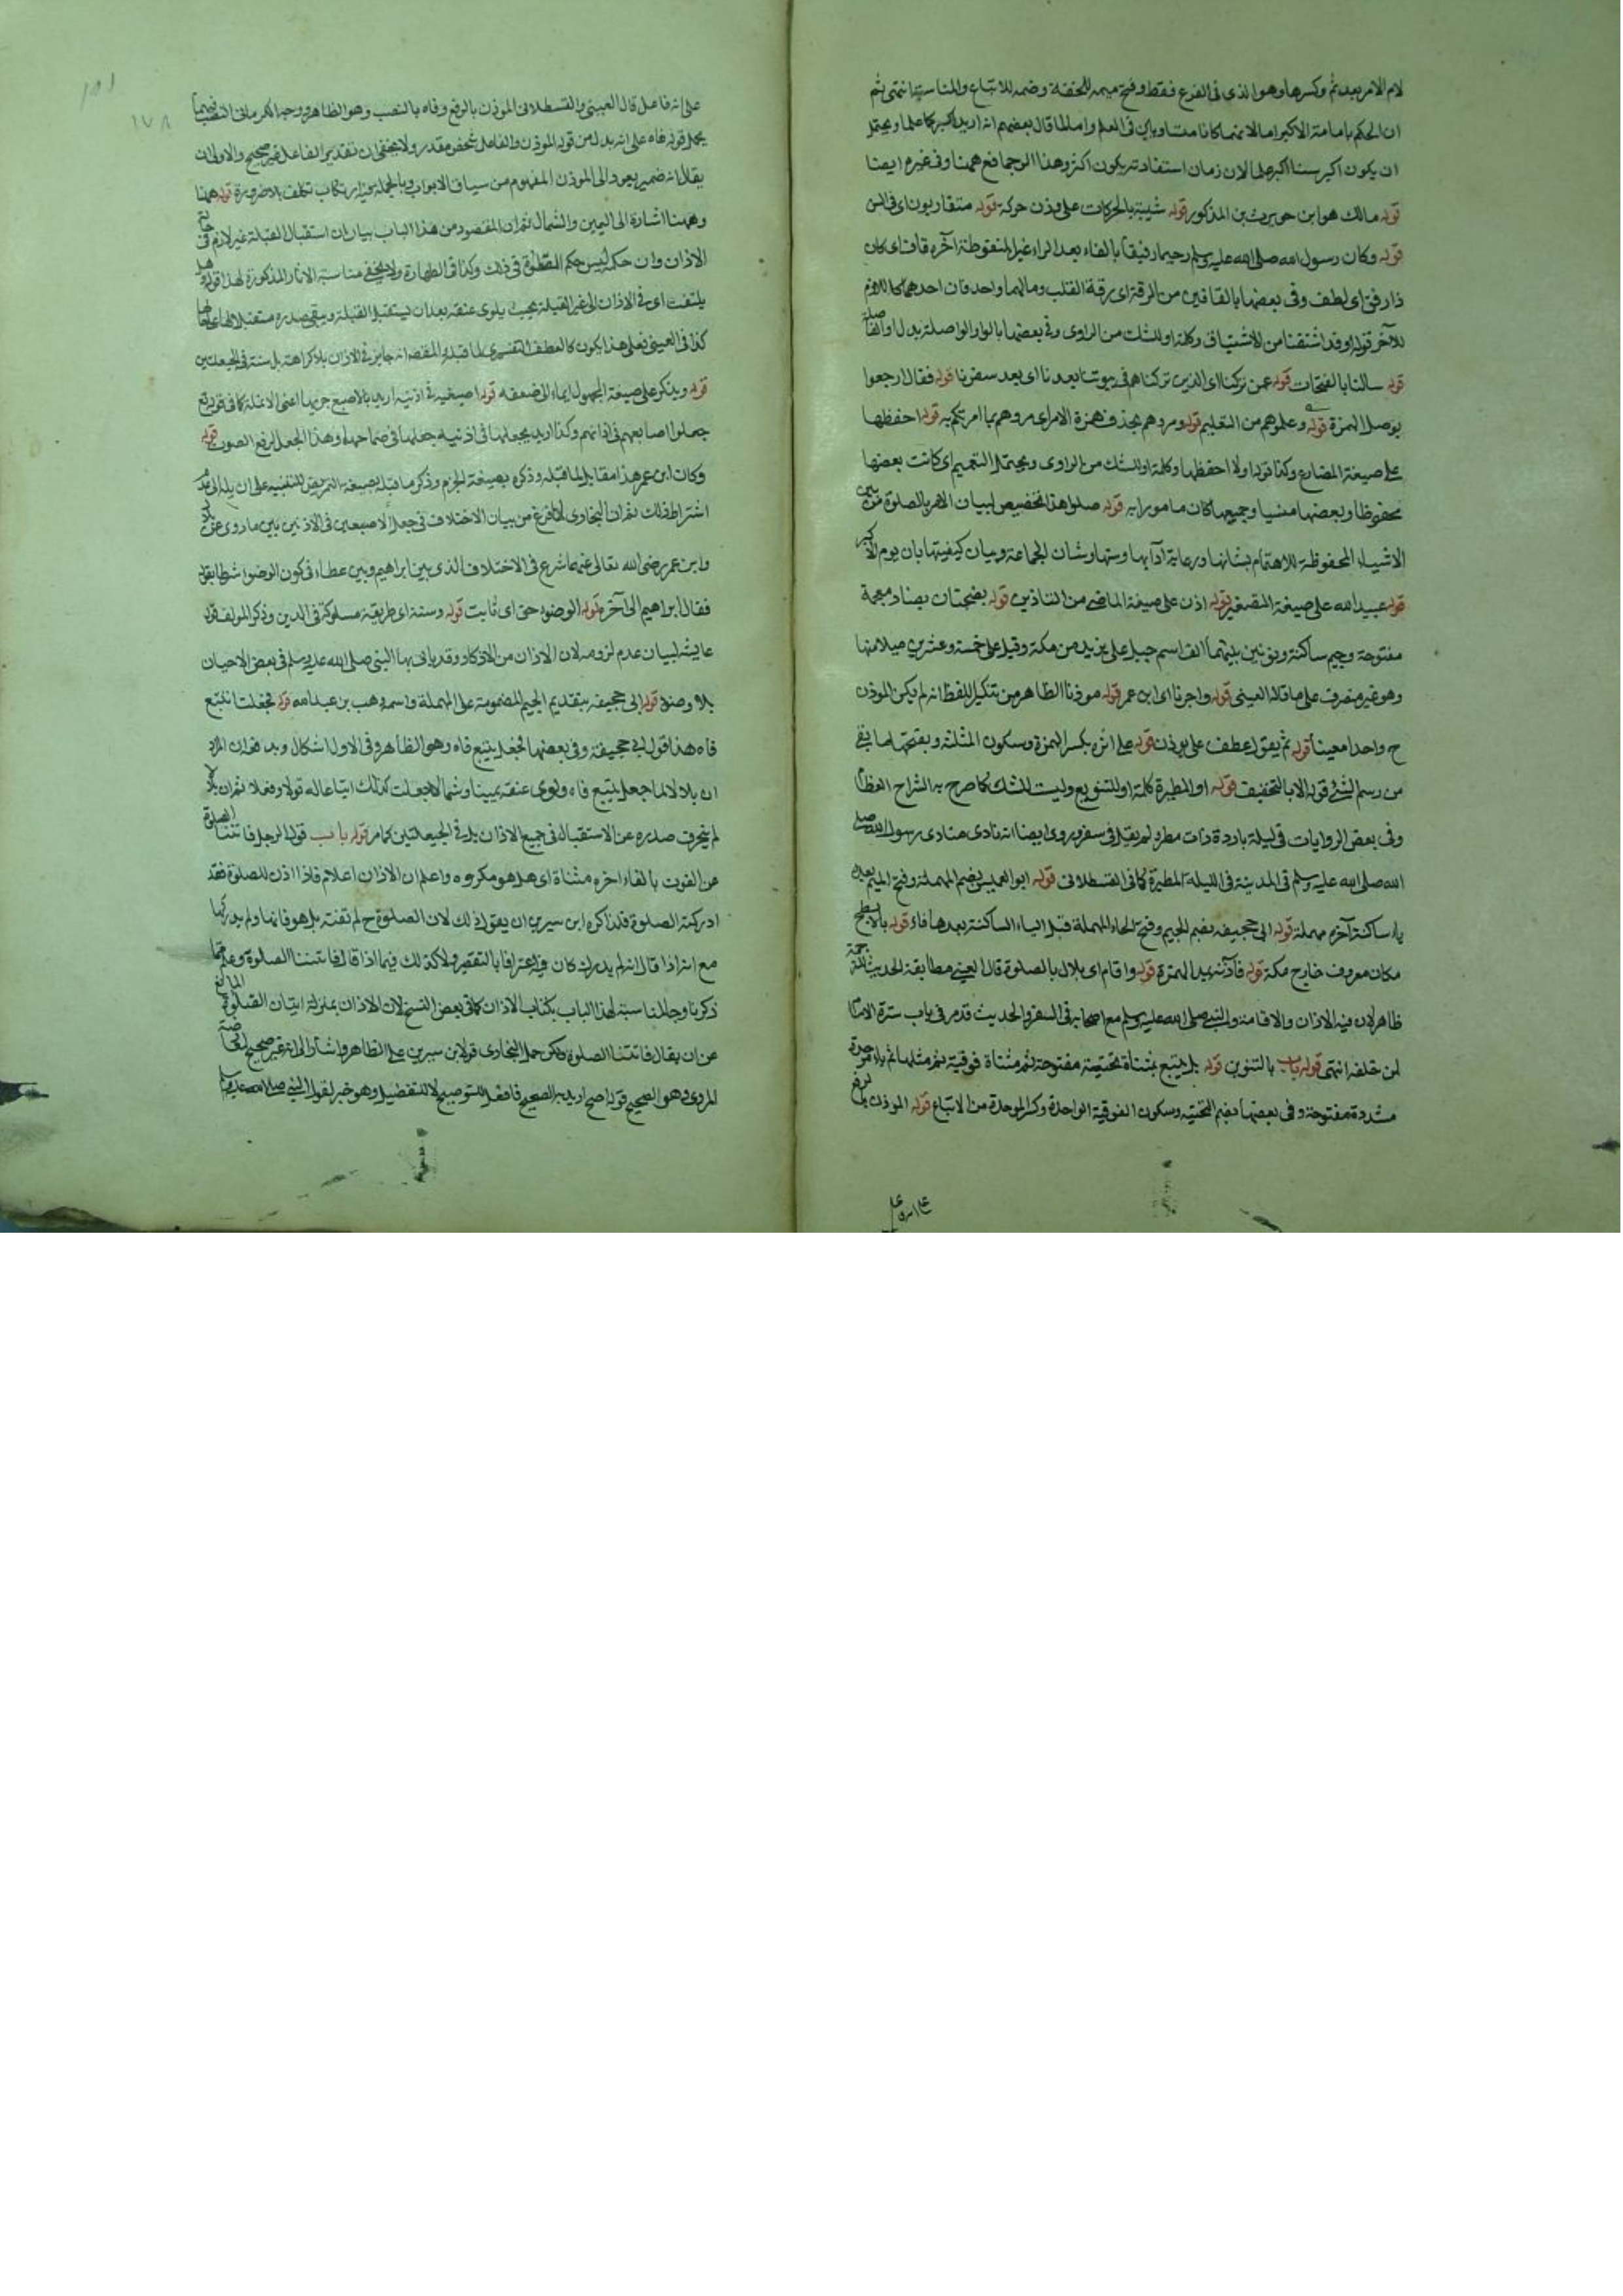 لام الامر بعد ثم وكسرها وهو الذى فى الفرع فقط وفتح ميمه للخفة وضمه للاتباع والمناسبة انتهى ثم
ان الحكم بامامة الاكبر اما لانهما كانا متساويين فى العلم واما لما قال بعضهم انه اريد اكبركما علما ويحتمل
ان يكون اكبر سنا اكبر علما لان زمان استفادته يكون اكثر وهذا الوجه انفع ههنا وفى غيره ايضا
قوله مالك هو ابن حويرث بن المذكور قوله شببة بالحركات على وزن حركة قوله متقاربون اى فى السن
قوله وكان رسول الله صلى الله عليه وسلم رحيما رفيقا بالفاء بعد الراء غير المنقوطة آخره قاف اى كان
ذا رفق اى لطف وفى بعضها بالقافين من الرقة اى رقة القلب ومالهما واحد فان احدهما كاللازم
للآخر قوله او قد اشتقنا من الاشتياق وكلمة او للشك من الراوى وفى بعضها بالواو الواصلة بدل او الفاصلة
قوله سالنا بالفتحات قوله عمن تركنا اى الذين تركناهم فى بيوتنا بعدنا اى بعد سفرنا قوله فقال ارجعوا
بوصل الهمزة قوله وعلموهم من التعليم قوله ومروهم بحذف همزة الامر اى مروهم بما امرتكم به قوله احفظها
على صيغة المضارع وكذا قوله ولا احفظها وكلمة او للشك من الراوى ويحتمل التعميم اى كانت بعضها
محفوظا وبعضها منسيا وجميعها كان مامورا به قوله صلوا هذا تخصيص لبيان الامر بالصلوة من بين
الاشياء المحفوظة للاهتمام بشانها ورعاية آدابها وسننها وشان الجماعة وبيان كيفيتها بان يوم الاكبر
قوله عبيد الله على صيغة المصغر قوله اذن على صيغة الماضى من التاذين قوله بضجنان بضاد معجمة
مفتوحة وجيم ساكنة ونونين بينهما الف اسم جبل على بريد من مكة وقيل على خمسة وعشرين ميلا منها
وهو غير منصرف على ما قاله العينى قوله واخبرنا اى ابن عمر قوله موذنا الظاهر من تنكير اللفظ انه لم يكن الموذن
ح واحدا معينا قوله ثم يقول عطف على يوذن قوله على اثره بكسر الهمزة وسكون المثلثة وبفتحها ما بقى
من رسم الشئ قوله الا بالتخفيف قوله او المطيرة كلمة او للتنويع وليست للشك كما صرح به الشراح العظام
وفى بعض الروايات فى ليلة باردة ذات مطر ولم يقل فى سفر وروى ايضا انه نادى منادى رسول الله صلى
الله صلى الله عليه وسلم فى المدينة فى الليلة المطيرة كما فى القسطلانى قوله ابو العميس بضم المهملة وفتح الميم بعده
ياء ساكنة آخره مهملة قوله ابى جحيفة بضم الجيم وفتح الحاء المهملة قبل الياء الساكنة بعدها فاء قوله بالابطح
مكان معروف خارج مكة قوله فآذنه بمد الهمزة قوله واقام اى بلال بالصلوة قال العينى مطابقة الحديث للترجمة
ظاهر لان فيه الاذان والاقامة والنبى صلى الله عليه وسلم مع اصحابه فى السفر والحديث قد مر فى باب سترة الامام
لمن خلفه انتهى قوله باب بالتنوين قوله هل يتتبع بمثناة تحتية مفتوحة ثم مثناة فوقية ثم مثلها ثم باء موحدة
مشددة مفتوحة وفى بعضها بضم التحتية وسكون الفوقية الواحدة وكسر الموحدة من الاتباع قوله الموذن بالرفع
على انه فاعل قال العينى والقسطلانى الموذن بالرفع وفاه بالنصب وهو الظاهر ووجه الكرمانى النصب فيهما
يحمل قوله فاه على انه بدل من قوله الموذن والفاعل شخص مقدر ولا يخفى ان تقدير الفاعل غير صحيح والاولى ان
يقال انه ضمير يعود الى الموذن المفهوم من سياق الابواب وبالجملة فيه ارتكاب تكلف بلا ضرورة قوله ههنا
وههنا اشارة الى اليمين والشمال ثم ان المقصود من هذا الباب بيان ان استقبال القبلة غير لازم فى
الاذان وان حكمه ليس حكم الصلوة فى ذلك وكذا فى الطهارة ولا يخفى مناسبة الاثار المذكورة لهذا قوله وهل
يلتفت اى فى الاذان الى غير القبلة بحيث يلوى عنقه بعد ان يستقبل القبلة ويبقى صدره مستقبلا
كذا فى العينى فعلى هذا يكون كالعطف التفسيرى لما قبله والمقصد انه جائز فى الاذان بلا كراهة بل سنة فى الحيعلتين
قوله ويذكر على صيغة المجهول ايماء الى ضعفه قوله اصبعيه فى اذنيه اريد بالاصبع جزءها اعنى الانملة كما فى قوله تع
جعلوا اصابعهم فى اذانهم وكذا اريد بجعلهما فى اذنيه جعلهما فى صماخهما وهذا الجعل لرفع الصوت قوله
وكان ابن عمر هذا مقابل لما قبله وذكره بصيغة الجزم وذكر ما قبله بصيغة التمريض للتنبيه على ان ميله الى عدم
اشتراط ذلك ثم ان البخارى لما فرغ من بيان الاختلاف فى جعل الاصبعين فى الاذنين بين ما روى عن بلال
وابن عمر رضى الله تعالى عنهما شرع فى الاختلاف الذى بين ابراهيم وبين عطاء فى كون الوضوء شرطا
فقال ابراهيم الى آخره قوله الوضوء حق اى ثابت قوله وسنة اى طريقة مسلوكة فى الدين وذكر المولف قول
عايشة لبيان عدم لزومه لان الاذان من الاذكار وقد ياتى بها النبى صلى الله عليه وسلم فى بعض الاحيان
بلا وضوء قوله ابى جحيفة بتقديم الجيم المضمومة على المهملة واسمه وهب بن عبد الله قوله فجعلت اتتبع
فاه هذا قول ابى جحيفة وفى بعضها فجعل يتتبع فاه وهو الظاهر وفى الاول اشكال وبد فع ان المراد
ان بلالا لما جعل يتتبع فاه ويلوى عنقه يمينا وشمالا جعلت كذلك اتباعا له قولا وفعلا ثم ان بلالا
لم ينحرف صدره عن الاستقبال فى جميع الاذان بل فى الحيعلتين كما مر قوله باب قول الرجل فاتتنا الصلوة
من الفوت بالفاء اخره مثناة اى هل هو مكروه واعلم ان الاذان اعلام فاذا اذن للصلوة فقد
ادركته الصلوة فلذا كره ابن سيرين ان يقول ذلك لان الصلوة ح لم تفته بل هو فاتها ولم يدركها
مع انه اذا قال انه لم يدرك كان فيه اعترافا بالتقصير ولا كذلك فيما اذا قال فاتتنا الصلوة وعلم مما
ذكرنا وجه المناسبة لهذا الباب بكتاب الاذان كما فى بعض النسخ لان الاذان بمنزلة اتيان الصلوة
عن ان يقال فاتتنا الصلوة ولكن حمل البخارى قول ابن سيرين على الظاهر واشار الى انه غير صحيح
المروى وهو الصحيح قوله اصح اريد به الصحيح فافعل للتوضيح لا للتفضيل وهو خبر لقول النبى صلى الله عليه وسلم